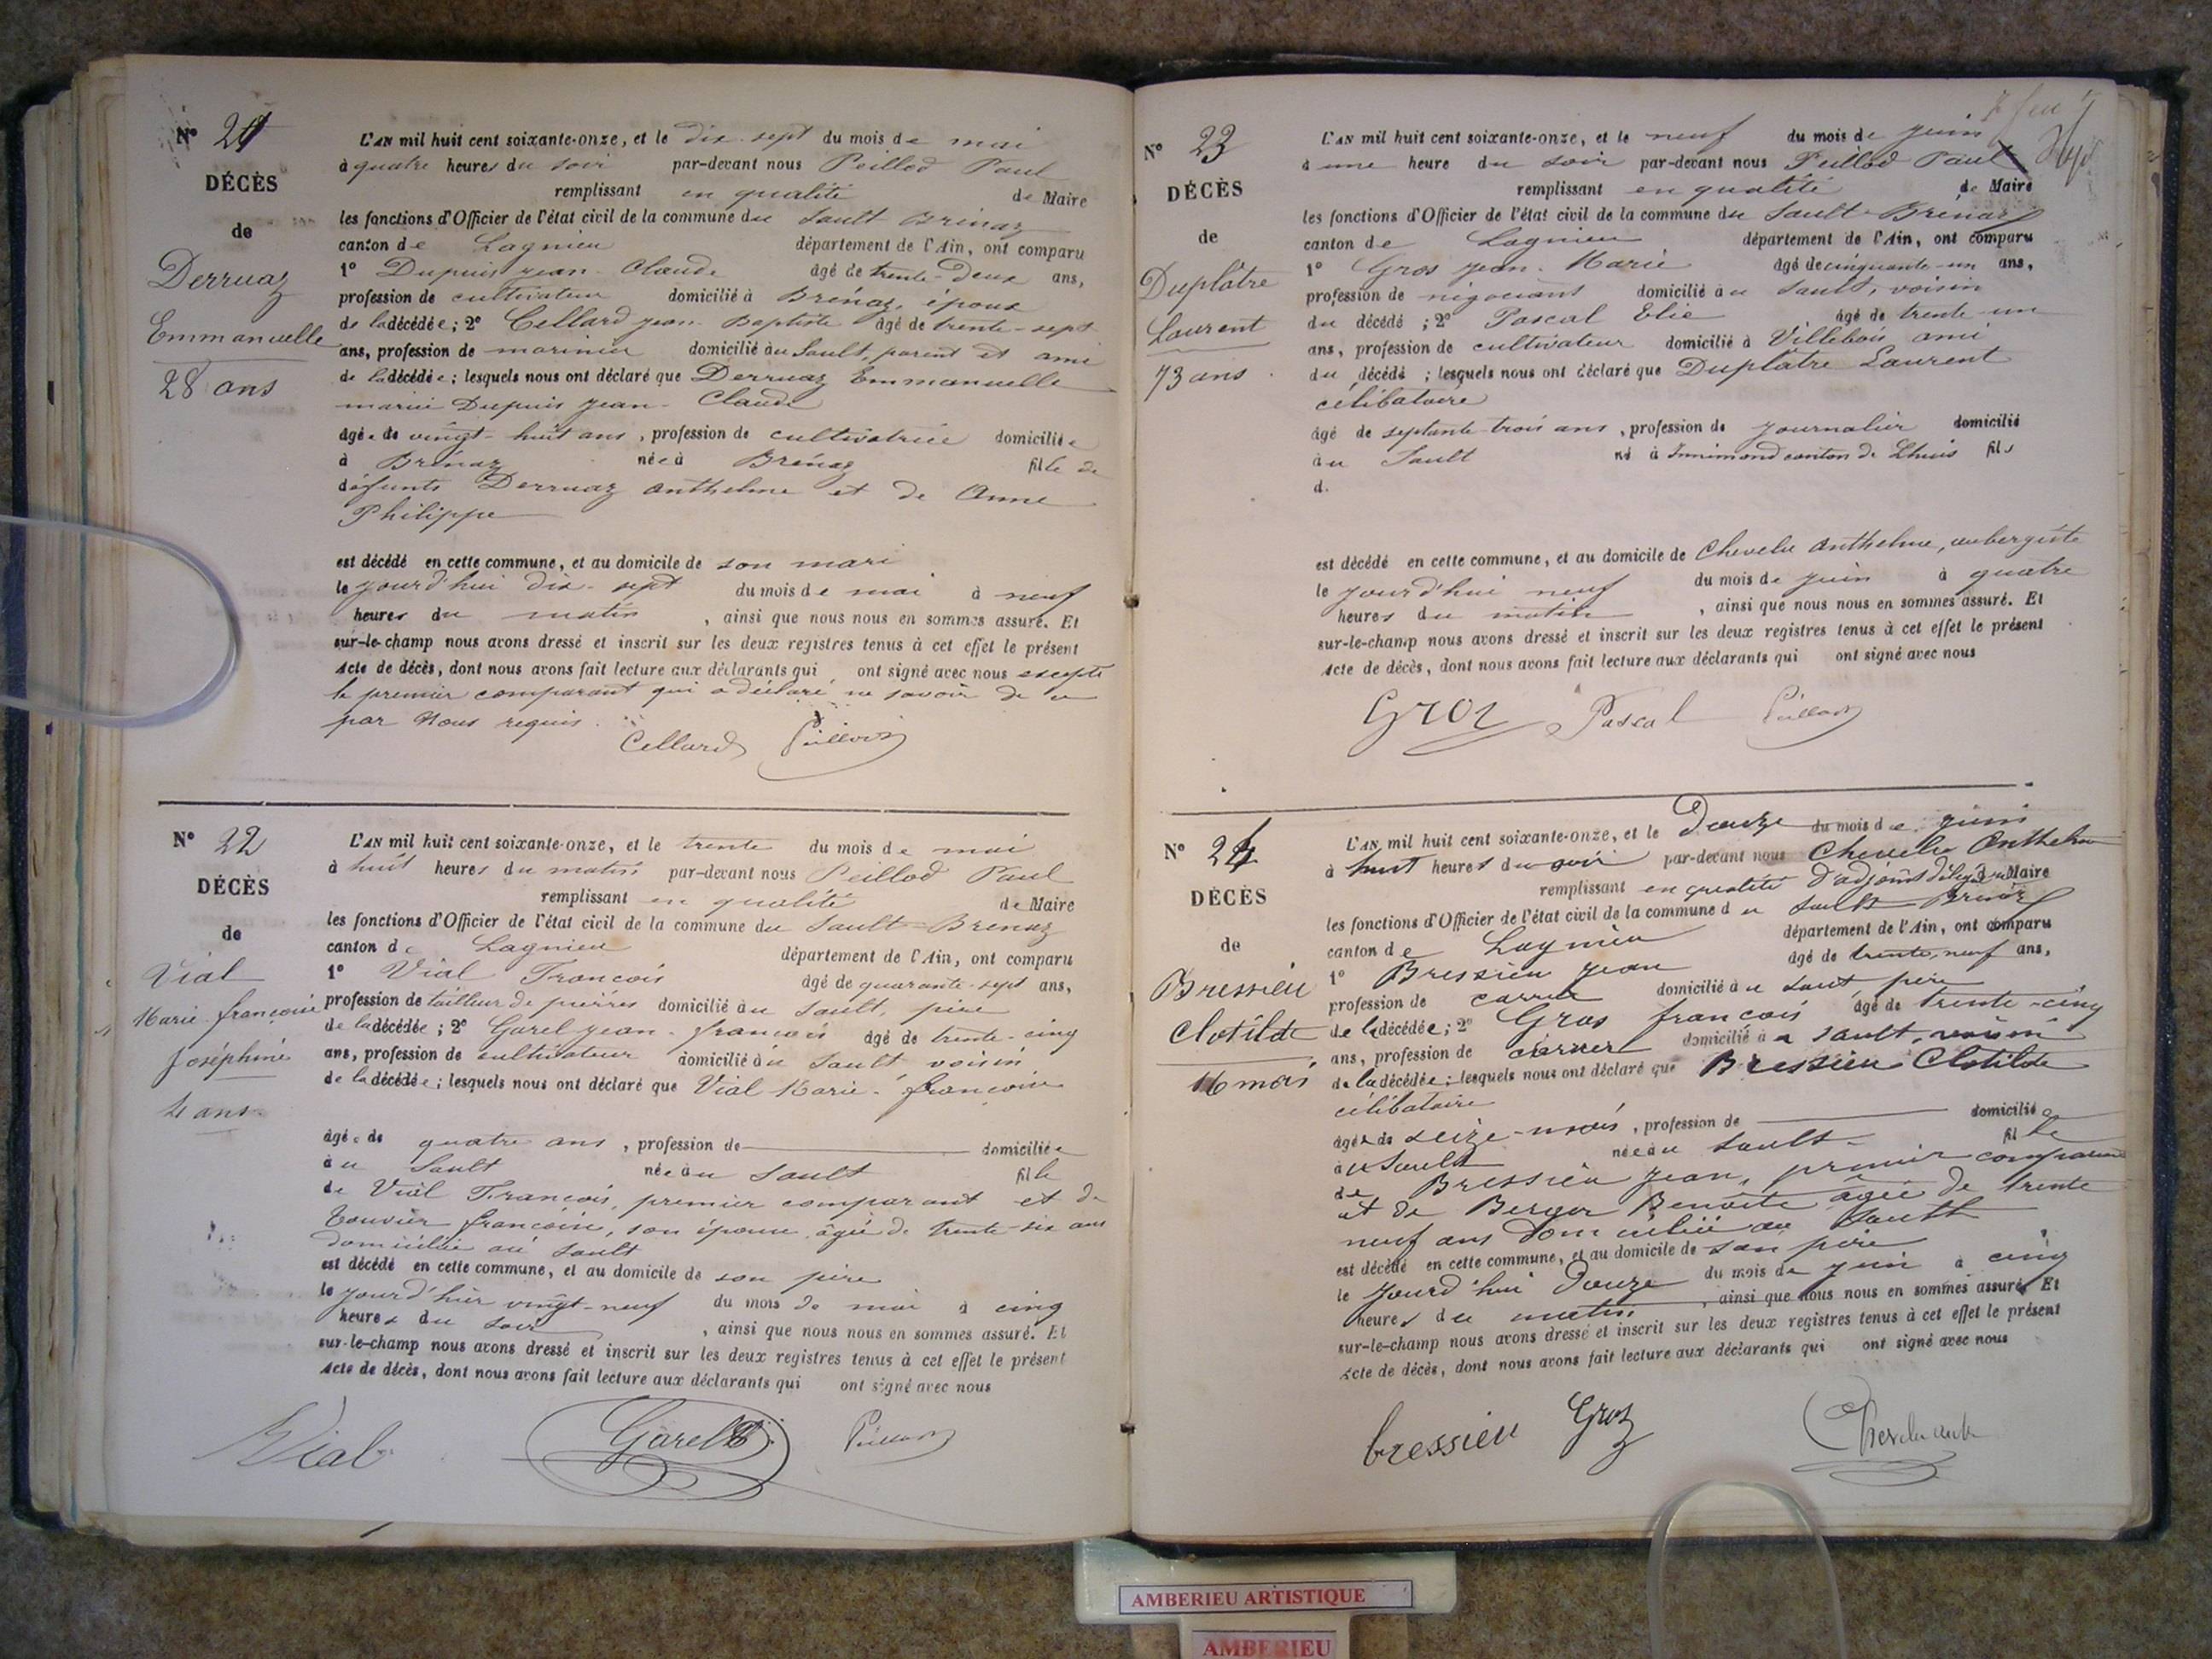 N° 21
DÉCÈS
de
Derruaz
Emmanuelle
28 ans
L'AN mil huit cent soixante-onze, et le dix-sept du mois de mai
à quatre heures du soir par-devant nous Peillod Paul
remplissant en qualité de Maire
les fonctions d'Officier de l'état civil de la commune du Sault Brénaz
canton de Lagnieu département de l'Ain, ont comparu
1° Dupuis Jean-Claude âgé de trente-deux ans,
profession de cultivateur domicilié à Brénaz, époux
de la décédée ; 2° Cellard Jean-Baptiste âgé de trente-sept
ans, profession de marinier domicilié au Sault, parent et ami
de la décédée ; lesquels nous ont déclaré que Derruaz Emmanuelle
mariée Dupuis Jean-Claude
âgée de vingt-huit ans, profession de cultivatrice domiciliée
à Brénaz née à Brénaz fille de
défunts Derruaz Anthelme et de Anne
Philippe
est décédé en cette commune, et au domicile de son mari
le jourd'hui dix-sept du mois de mai à neuf
heures du matin, ainsi que nous nous en sommes assuré. Et
sur-le-champ nous avons dressé et inscrit sur les deux registres tenus à cet effet le présent
acte de décès, dont nous avons fait lecture aux déclarants qui ont signé avec nous excepté
le premier comparant qui a déclaré ne savoir de ce
par Nous requis.
Cellard Peillod
N° 22
DÉCÈS
de
Vial
Marie-françoise
Joséphine
4 ans
L'AN mil huit cent soixante-onze, et le trente du mois de mai
à huit heures du matin par-devant nous Peillod Paul
remplissant en qualité de Maire
les fonctions d'Officier de l'état civil de la commune du Sault-Brenaz
canton de Lagnieu département de l'Ain, ont comparu
1° Vial François âgé de quarante-sept ans,
profession de tailleur de pierres domicilié au Sault, père
de la décédée ; 2° Garel Jean-françois âgé de trente-cinq
ans, profession de cultivateur domicilié au Sault voisin
de la décédée ; lesquels nous ont déclaré que Vial Marie-françoise
âgée de quatre ans, profession de domiciliée
au Sault née au Sault fille
de Vial François, premier comparant et de
Bouvier françoise, son épouse âgée de trente-six ans
domiciliée au Sault
est décédé en cette commune, et au domicile de son père
le jourd'hier vingt-neuf du mois de mai à cinq
heures du soir, ainsi que nous nous en sommes assuré. Et
sur-le-champ nous avons dressé et inscrit sur les deux registres tenus à cet effet le présent
acte de décès, dont nous avons fait lecture aux déclarants qui ont signé avec nous
Vial Garel Peillod
N° 23
DÉCÈS
de
Duplâtre
Laurent
73 ans
L'AN mil huit cent soixante-onze, et le neuf du mois de juin
à une heure du soir par-devant nous Peillod Paul
remplissant en qualité de Maire
les fonctions d'Officier de l'état civil de la commune du Sault-Brénaz
canton de Lagnieu département de l'Ain, ont comparu
1° Gros Jean-Marie âgé de cinquante-un ans,
profession de négociant domicilié au Sault, voisin
du décédé ; 2° Pascal Elie âgé de trente-un
ans, profession de cultivateur domicilié à Villebois ami
du décédé ; lesquels nous ont déclaré que Duplâtre Laurent
célibataire
âgé de septante-trois ans, profession de journalier domicilié
au Sault né à Innimond canton de Lhuis fils
d.
est décédé en cette commune, et au domicile de Chevelu Anthelme, aubergiste
le jourd'hui neuf du mois de juin à quatre
heures du matin, ainsi que nous nous en sommes assuré. Et
sur-le-champ nous avons dressé et inscrit sur les deux registres tenus à cet effet le présent
acte de décès, dont nous avons fait lecture aux déclarants qui ont signé avec nous
Groz Pascal Peillod
N° 24
DÉCÈS
de
Bressieu
Clotilde
16 mois
L'AN mil huit cent soixante-onze, et le Douze du mois de juin
à huit heures du soir par-devant nous Chevelu Anthelme
remplissant en qualité d'adjoint délégué du Maire
les fonctions d'Officier de l'état civil de la commune du Sault-Brénaz
canton de Lagnieu département de l'Ain, ont comparu
1° Bressieu Jean âgé de trente-neuf ans,
profession de carrier domicilié au Saut père
de la décédée ; 2° Gros françois âgé de trente-cinq
ans, profession de carrier domicilié au Sault, voisin
de la décédée ; lesquels nous ont déclaré que Bressieu Clotilde
célibataire
âgée de seize-mois, profession de domiciliée
au Sault née au Sault fille
de Bressieu Jean, premier comparant
et de Berger Benoite âgée de trente
neuf ans domiciliée au Sault
est décédé en cette commune, et au domicile de son père
le jourd'hui douze du mois de juin à cinq
heures du matin, ainsi que nous nous en sommes assuré. Et
sur-le-champ nous avons dressé et inscrit sur les deux registres tenus à cet effet le présent
acte de décès, dont nous avons fait lecture aux déclarants qui ont signé avec nous
bressieu Groz
AMBERIEU ARTISTIQUE
AMBERIEU